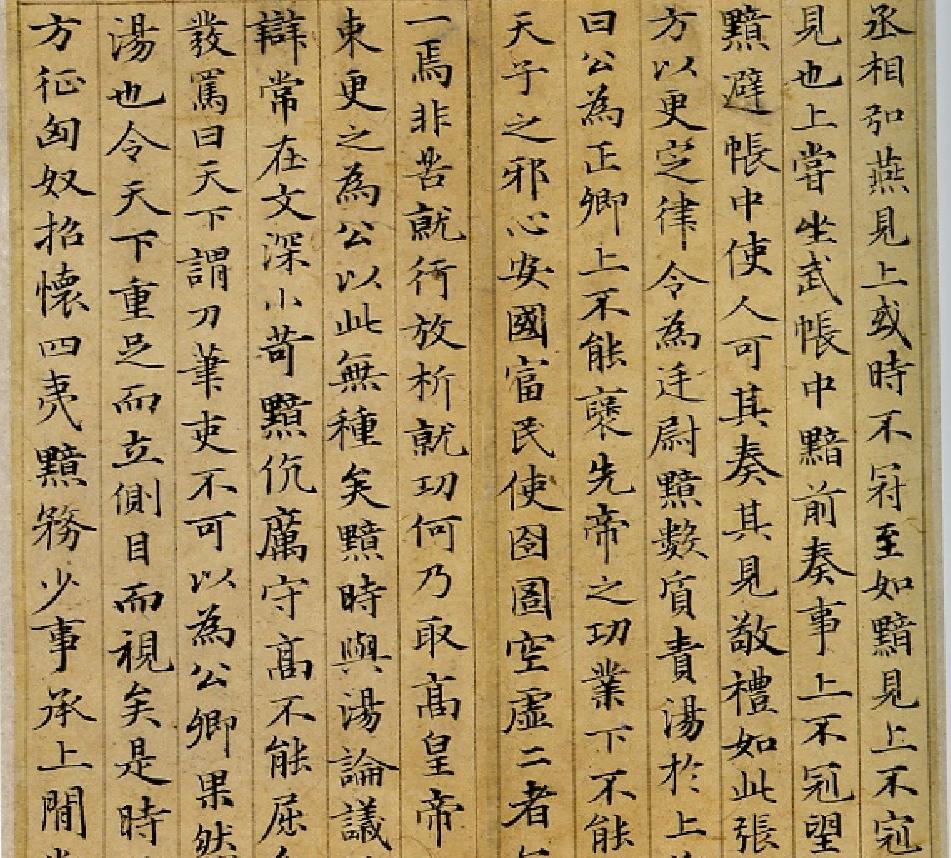 丞相弘燕見上或時不冠至如黯見上不冠
見也上嘗坐武帳中黯前奏事上不冠望
黯避帳中使人可其奏其見敬禮如此張
方以更定律令為廷尉黯數質責湯於上
曰公為正卿上不能襃先帝之功業下不能
天子之邪心安國富民使囹圄空虛二者
一焉非苦就行放析就功何乃取高皇帝
束更之為公以此無種矣黯時與湯論議
辯常在文深小苛黯伉厲守高不能屈
發罵曰天下謂刀筆吏不可以為公卿果然
湯也令天下重足而立側目而視矣是時
方征匈奴招懷四夷黯務少事承上閒